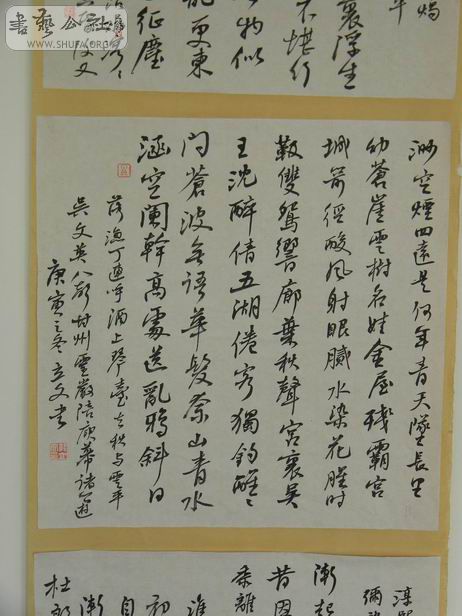 書藝公社
WWW.SHUFA.ORG
裏浮生
不堪行
物似
亂更東
征塵
渺空煙四遠是何年青天墜長星
幻蒼崖雲樹名娃金屋殘霸宮
城箭徑酸風射眼膩水染花腥時
靸雙鴛響廊葉秋聲宮裏吳
王沈醉倩五湖倦客獨釣醒醒
問蒼波無語華髮奈山青水
涵空闌幹高處送亂鴉斜日
落漁汀連呼酒上琴臺去秋與雲平
吳文英八聲甘州靈巖陪庾幕諸公遊
庚寅之冬立文書
淳熙
漸起
昔因
淮
初
自
漸
杜郎